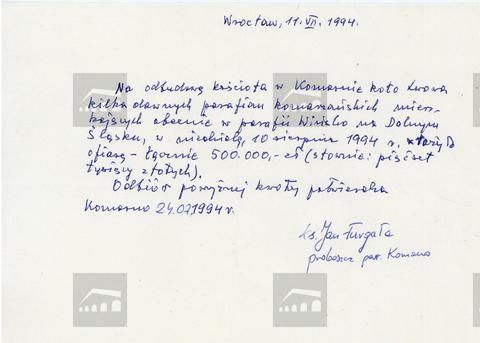 Wrocław, 11. VII. 1994.
Na odbudowę kościoła w Komarnie koło Lwowa
kilka dawnych parafian komarzańskich miesz-
kających obecnie w parafii Wińsko na Dolnym
Śląsku, w niedzielę, 10 sierpnia 1994 r. złożyło
ofiarę - łącznie 500.000,- zł (słownie: pięćset
tysięcy złotych).
Odbiór powyższej kwoty potwierdza
Komarno 24.07.1994 r.
ks. Jan
proboszcz par. Komarno